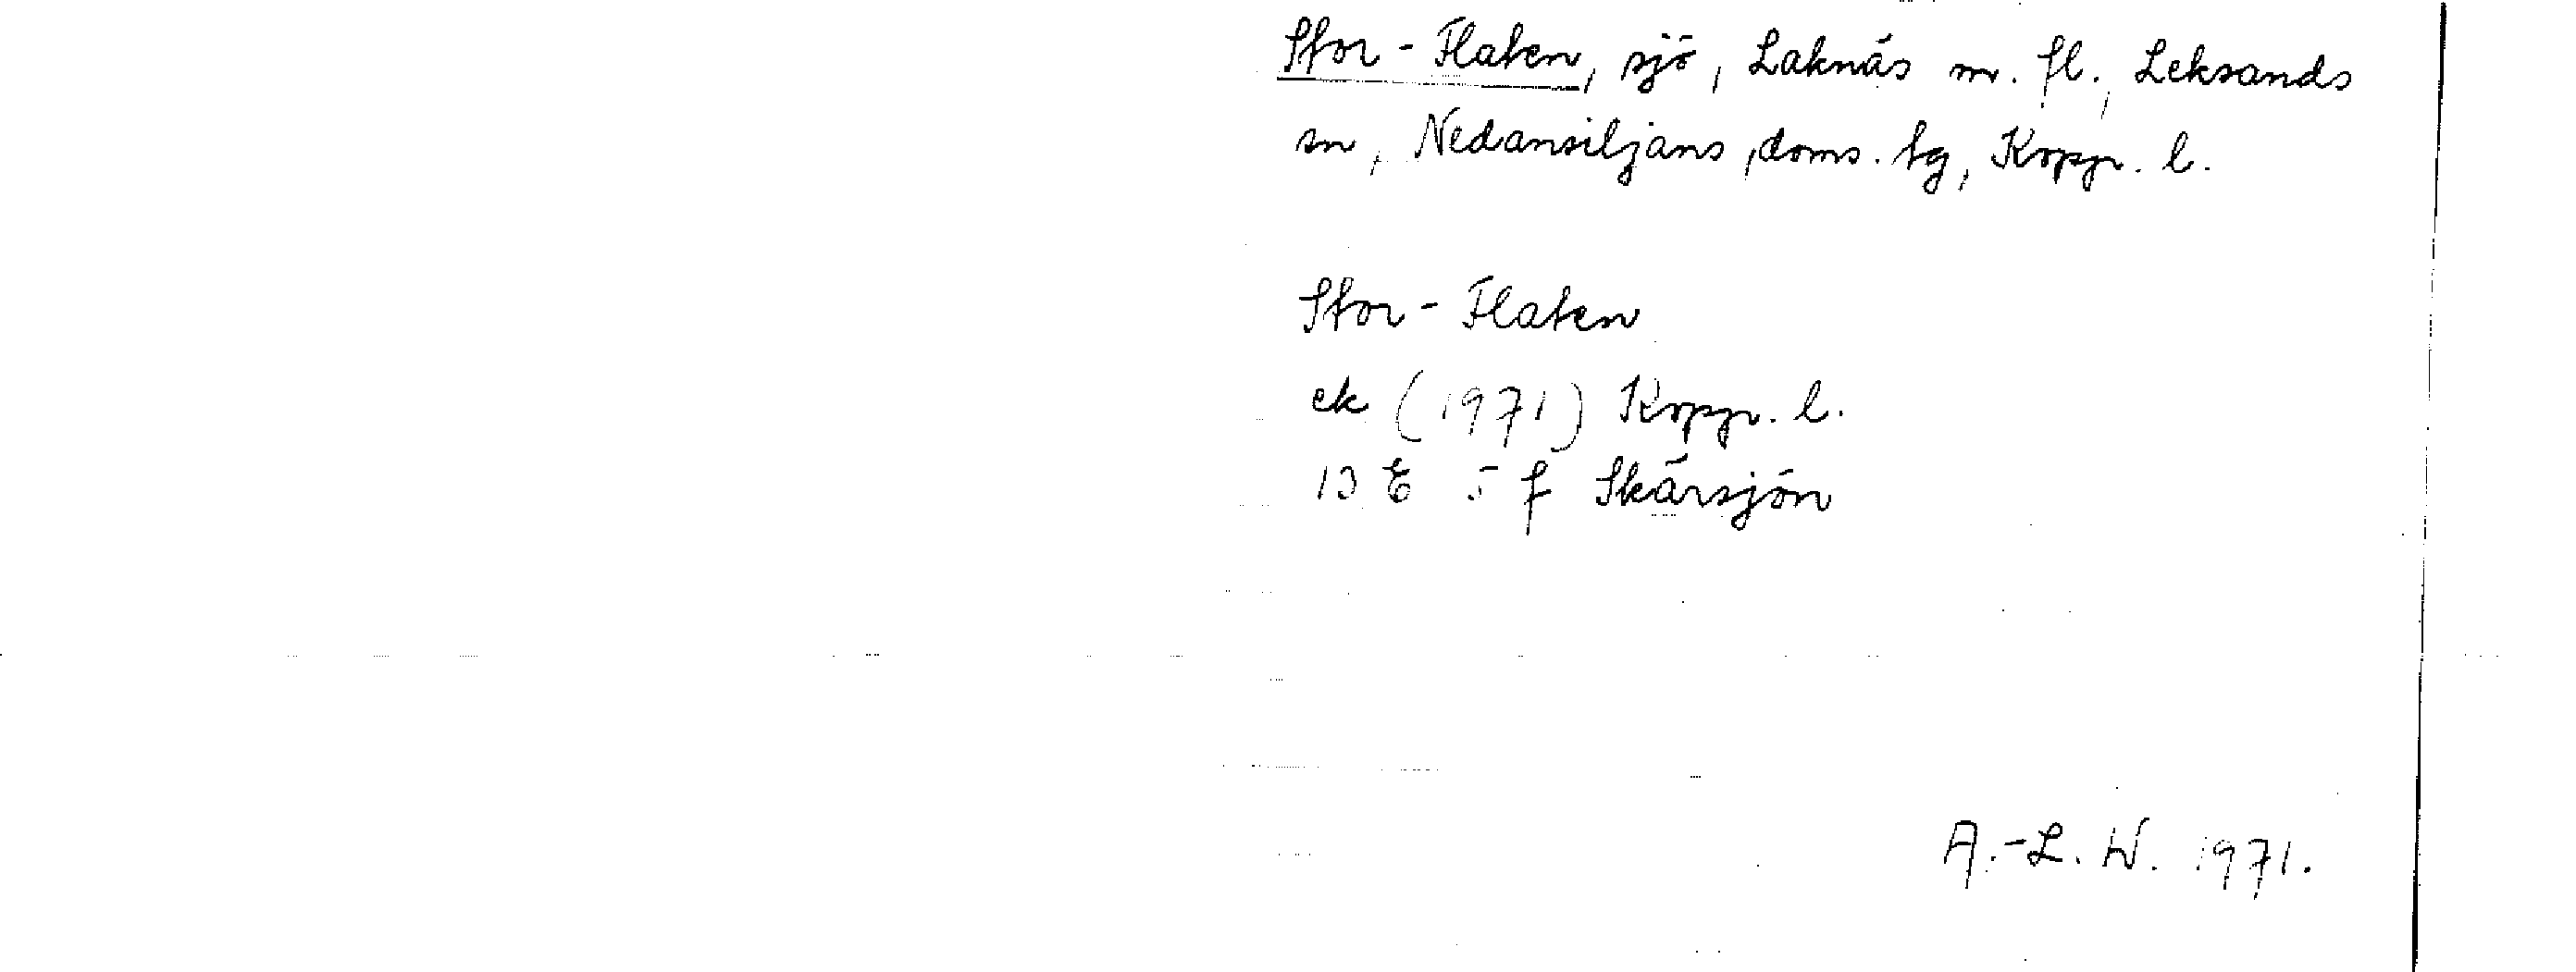 Stor-Flaten, sjö, Laknäs m. fl., Leksands
sn, Nedansiljans doms. tg, Kopp. l.
Stor-Flaten
ek (1971) Kopp. l.
13 E 5 f Skärsjön
A.-L. W. 1971.